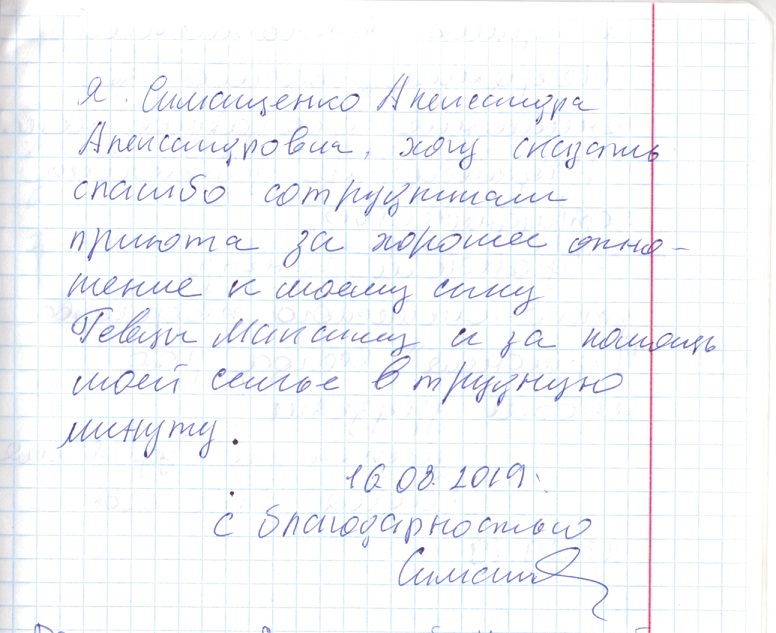 Я Симащенко Александра
Александровна, хочу сказать
спасибо сотрудникам
приюта за хорошее отно-
шение к моему сыну
Максиму и за помощь
моей семье в трудную
минуту.
16.08.2019г.
С благодарностью